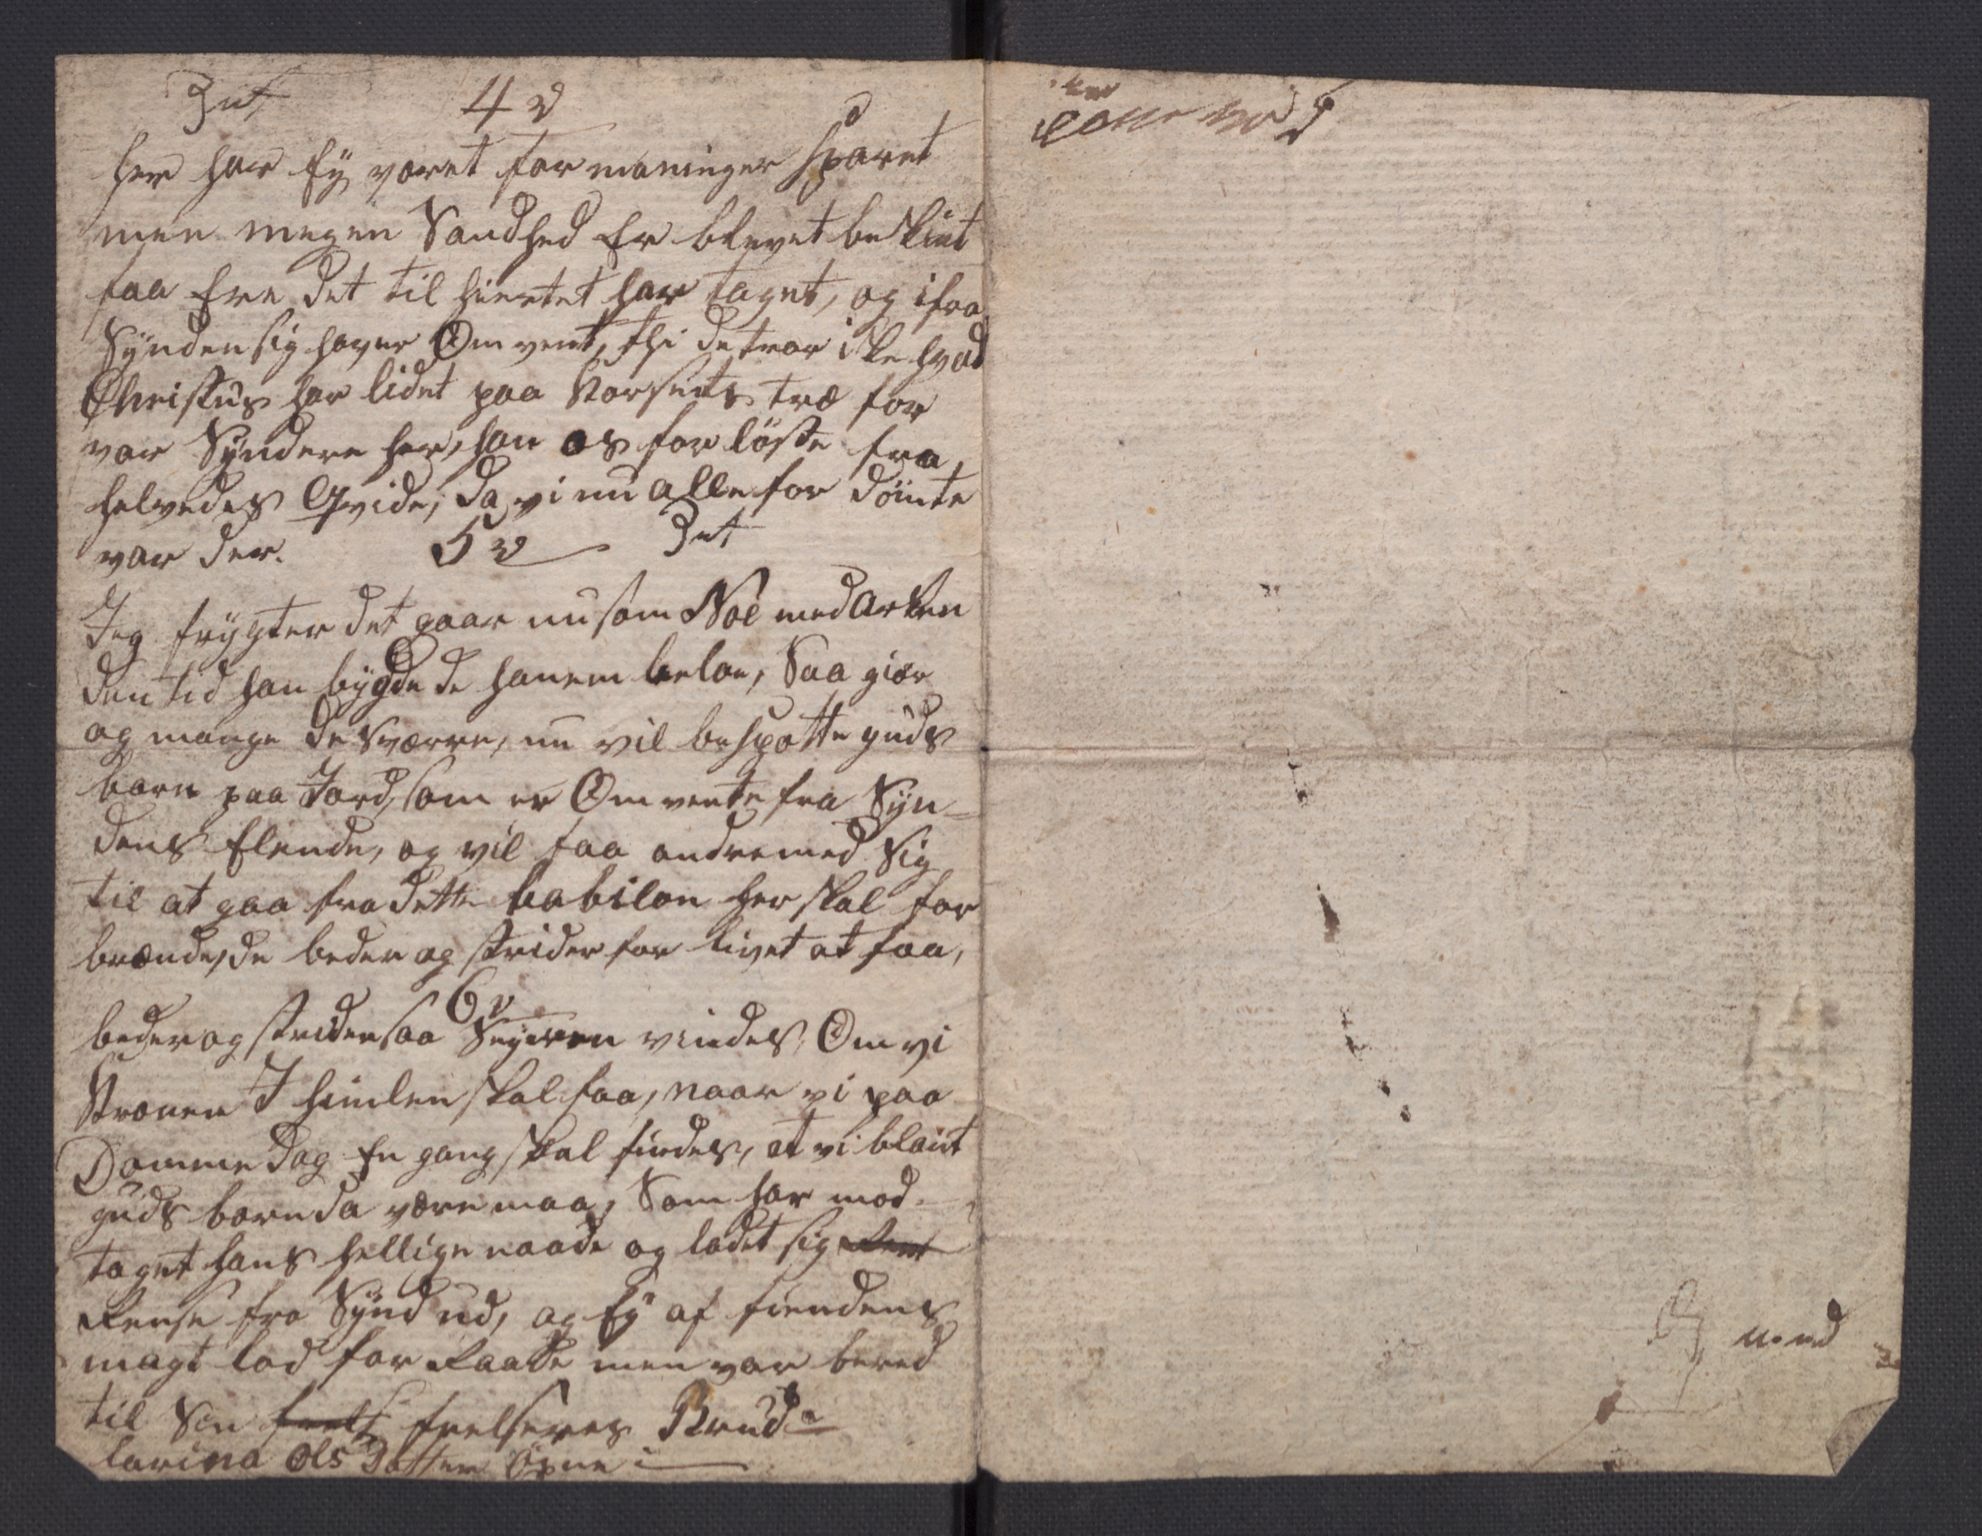 4 v
her har Ey været formaninger Sparet
men megen Sandhed Er blevet beskint
faa Ere det til hiertet har taget, og ifra
Synden sig haver Omvent, thi de troe iske hvad
Christus har lidet paa Korsets træ for
vor Syndere her, han os forløste fra
helvedes Qvide, da vi nu alle fordømte
var der. 5 v
Jeg frygter det gaar nu som Noe med arken
den tid han bygde de hanem beloe, Saa giør
og mange desværre, nu vil bespotte guds
børn paa Jord, som er Omvente fra Syn-
dens Elende, og vil faa andre med Sig
til at gaa fra dette babilon her skal for
brænde, de beder og strider for livet at faa,
6 v
beder og strider saa Seyeren vindes, Om vi
Kronen I himlen skal faa, naar vi paa
Domme dag En gang skal findes, at vi blant
guds børn da være maa, Som har mod-
taget hans hellige naade og ladet sig
Rense fra Synd ud, og Ey af fiendens
magt lod for Raadde men var bered
til Sin frelseres Brud
larina Ols Datter
med